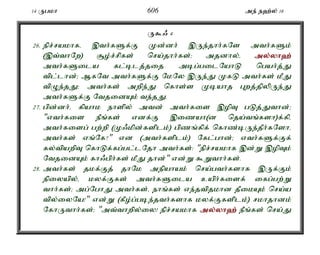 14 ருபமா 606 அந் நஹ்ல் 16
ருகூஃ 4
26. நிச்சயமாக, இவர்களுக்கு முன்னர் இருந்தார்களே அவர்களும்
(இவ்வாறே) சூழ்ச்சிகள் செய்தார்கள்; அதனால், அல்லாஹ்
அவர்களுடைய கட்டிடத்தை அடிப்படையோடு பெயர்த்து
விட்டான்; ஆகவே அவர்களுக்கு மேலே இருந்து முகடு அவர்கள் மீது
விழுந்தது; அவர்கள் அறிந்து கொள்ள முடியாத புறத்திலிருந்து
அவர்களுக்கு வேதனையும் வந்தது.
27. பின்னர், கியாம நாளில் அவன் அவர்களை இழிவு படுத்துவான்;
"எவர்களை நீங்கள் எனக்கு இணையா(ன தெய்வங்களா)க்கி,
அவர்களைப் பற்றி (மூஃமின்களிடம்) பிணங்கிக் கொண்டிருந்தீர்களோ,
அவர்கள் எங்கே?" என (அவர்களிடம்) கேட்பான்; எவர்களுக்குக்
கல்வியறிவு கொடுக்கப்பட்டதோ அவர்கள்: "நிச்சயமாக இன்று இழிவும்
வேதனையும் காஃபிர்கள் மீது தான்" என்று கூறுவார்கள்.
28. அவர்கள் தமக்குத் தாமே அநியாயம் செய்பவர்களாக இருக்கும்
நிலையில், மலக்குகள் அவர்களுடைய உயிர்களைக் கைப்பற்று
வார்கள்; அப்போது அவர்கள், நாங்கள் எந்தவிதமான தீமையும் செய்ய
வில்லையே!" என்று (கீழ்ப்படிந்தவர்களாக மலக்குகளிடம்) சமாதானம்
கோருவார்கள்; "அவ்வாறில்லை! நிச்சயமாக அல்லாஹ் நீங்கள் செய்து